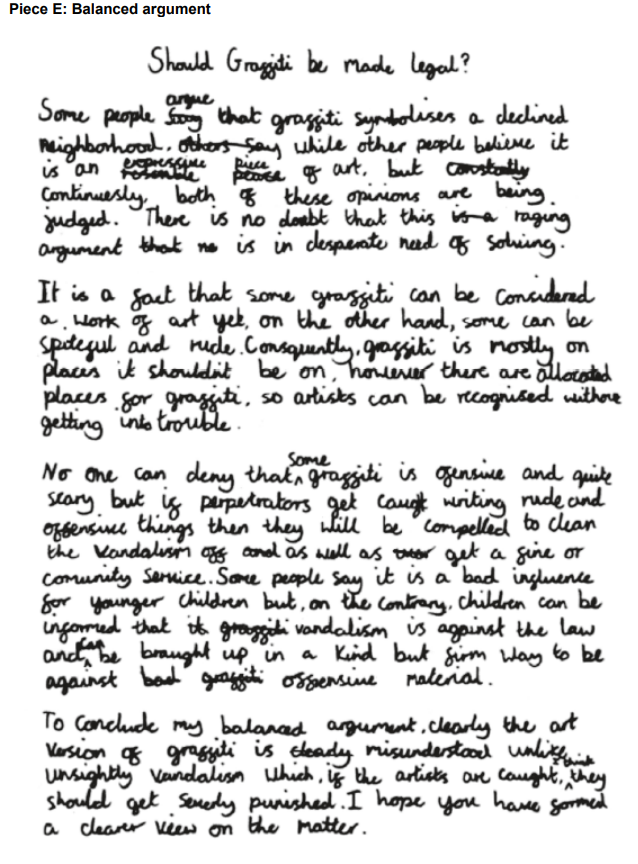 Piece E: Balanced argument
Should Graffiti be made legal?
argue
Some people say that graffiti symbolises a declined
neighborhood, others say while other people believe it
expressive piece
is an resemble peace of art, but constantly
continuesly, both of these opinions are being
judged. There is no doubt that this is a raging
argument that ne is in desperate need of solving.
It is a fact that some graffiti can be considered
a work of art yet, on the other hand, some can be
spiteful and rude. Consquently, graffiti is mostly on
places it shouldn't be on, however there are allocated
places for graffiti, so artists can be recognised without
getting into trouble.
some
No one can deny that graffiti is ofensive and quite
scary but if perpetrators get caugt writing rude and
offensive things then they will be compelled to clean
the vandalism off and as well as get a fine or
comunity service. Some people say it is a bad influence
for younger children but, on the contrary, children can be
informed that it graffiti vandalism is against the law
can
and be braught up in a kind but firm way to be
against bad graffiti offensive material.
To conclude my balanced argument, clearly the art
version of graffiti is misunderstood unlike
think
unsightly vandalism which, if the artists are caught, they
should get severly punished. I hope you have formed
a clearer veiw on the matter.